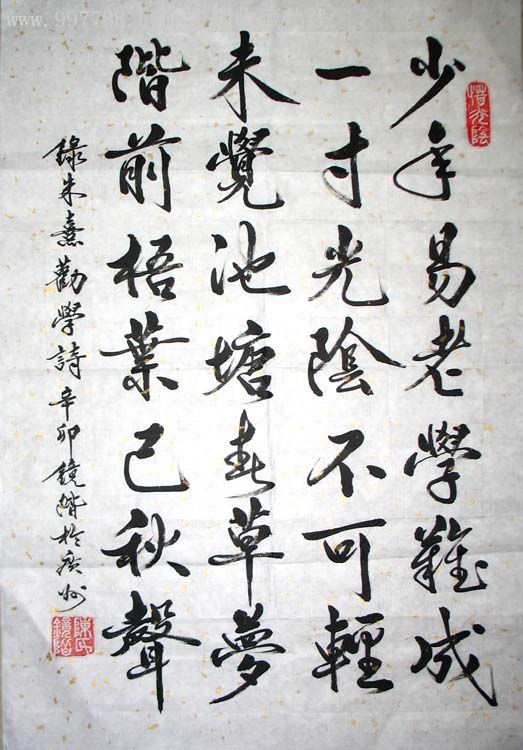 少年易老學難成
一寸光陰不可輕
未覺池塘春草夢
階前梧葉已秋聲
錄朱熹勸學詩辛卯鏡階於廣州
惜光陰
陳氏鏡階
www.997788.com